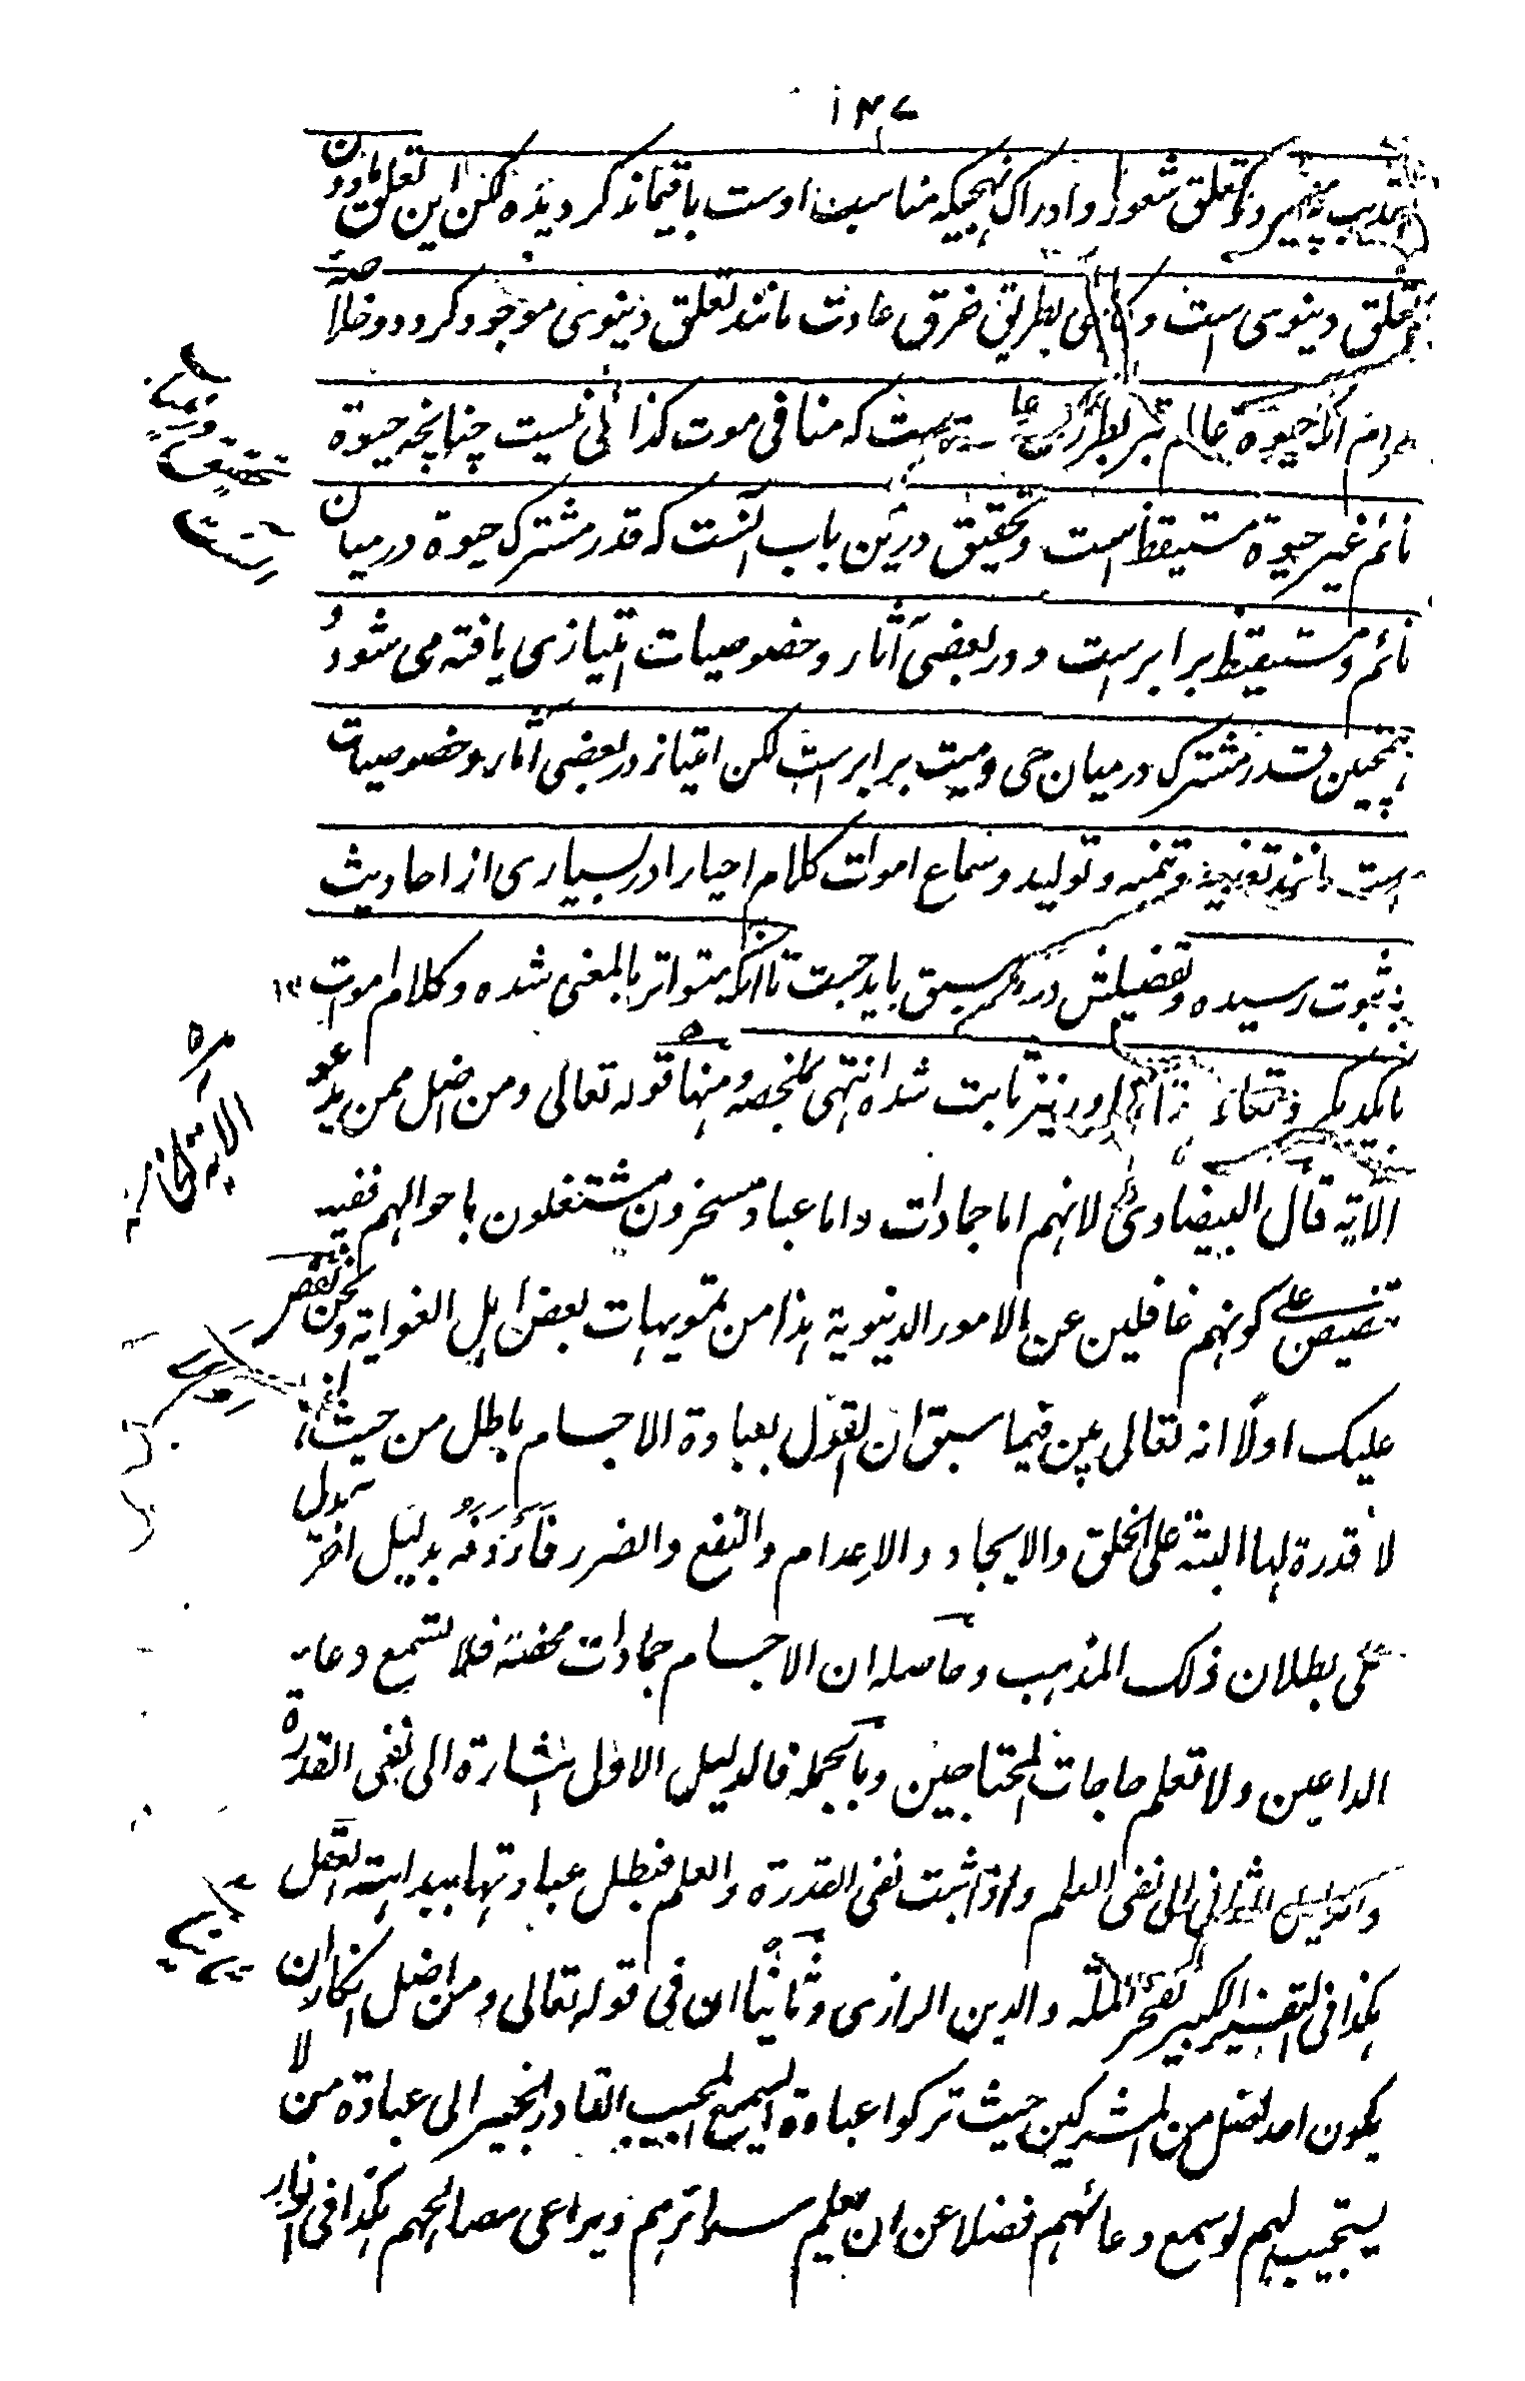 ۱۴۷
تعلق شعور و ادراک بنهجیکه مناسبت اوست باقیماند گردیده لکن این تعلق مادون
تعلق دنیوی است و بطریق خرق عادت مانند تعلق دنیوی موجود گردد و خلاصه
مرام آنکه حیوة عالم قبر بطرزی است که منافی موت کذائی نیست چنانچه حیوة
نائم غیر حیوة مستیقظ است و تحقیق درین باب آنست که قدر مشترک حیوة در میان
نائم و مستیقظ برابرست و در بعضی آثار و خصوصیات امتیازی یافته می شود و
همچنین قدر مشترک در میان حی و میت برابرست لکن امتیاز در بعضی آثار و خصوصیات
است مانند تغذیه و تنمیه و تولید و سماع اموات کلام احیار ا در بسیاری از احادیث
به ثبوت رسیده و تفصیلش در سبق باید جست تا آنکه متواتر بالمعنی شده و کلام اموات با
یکدیگر و نیز ثابت شده انتهی ملخصه و منها قوله تعالی و من اضل ممن یدعو
الآیه قال البیضاوی لانهم اما جمادات و اما عباد مسخرون مشتغلون باحوالهم ففیه
تنصیص علی کونهم غافلین عن الامور الدنیویة هذا من تمویهات بعض اهل الغوایة و نحن نقص
علیک اولًا انه تعالی بین فیما سبق ان القول بعبادة الاجسام باطل من حیث انه
لا قدرة لها البتة علی الخلق والایجاد والاعدام والنفع والضرر فأردفه بدلیل اخر یدل
علی بطلان ذلک المذهب و حاصله ان الاجسام جمادات محضة فلا تسمع دعاء
الداعین ولا تعلم حاجات المحتاجین و بالجملة فالدلیل الاول اشارة الی نفی القدرة
والدلیل الثانی الی نفی العلم و اذا ثبت نفی القدرة والعلم فبطل عبادتها ببداهة العقل
هکذا فی التفسیر الکبیر لفخر الملة والدین الرازی و ثانیًا ان فی قوله تعالی و من اضل انکار ان
یکون احد اضل من المشرکین حیث ترکوا عبادة السمیع المجیب القادر الخبیر الی عبادة من لا
یستجیب لهم لو سمع دعائهم فضلا عن ان یعلم سرائرهم و یراعی مصالحهم هکذا فی انوار